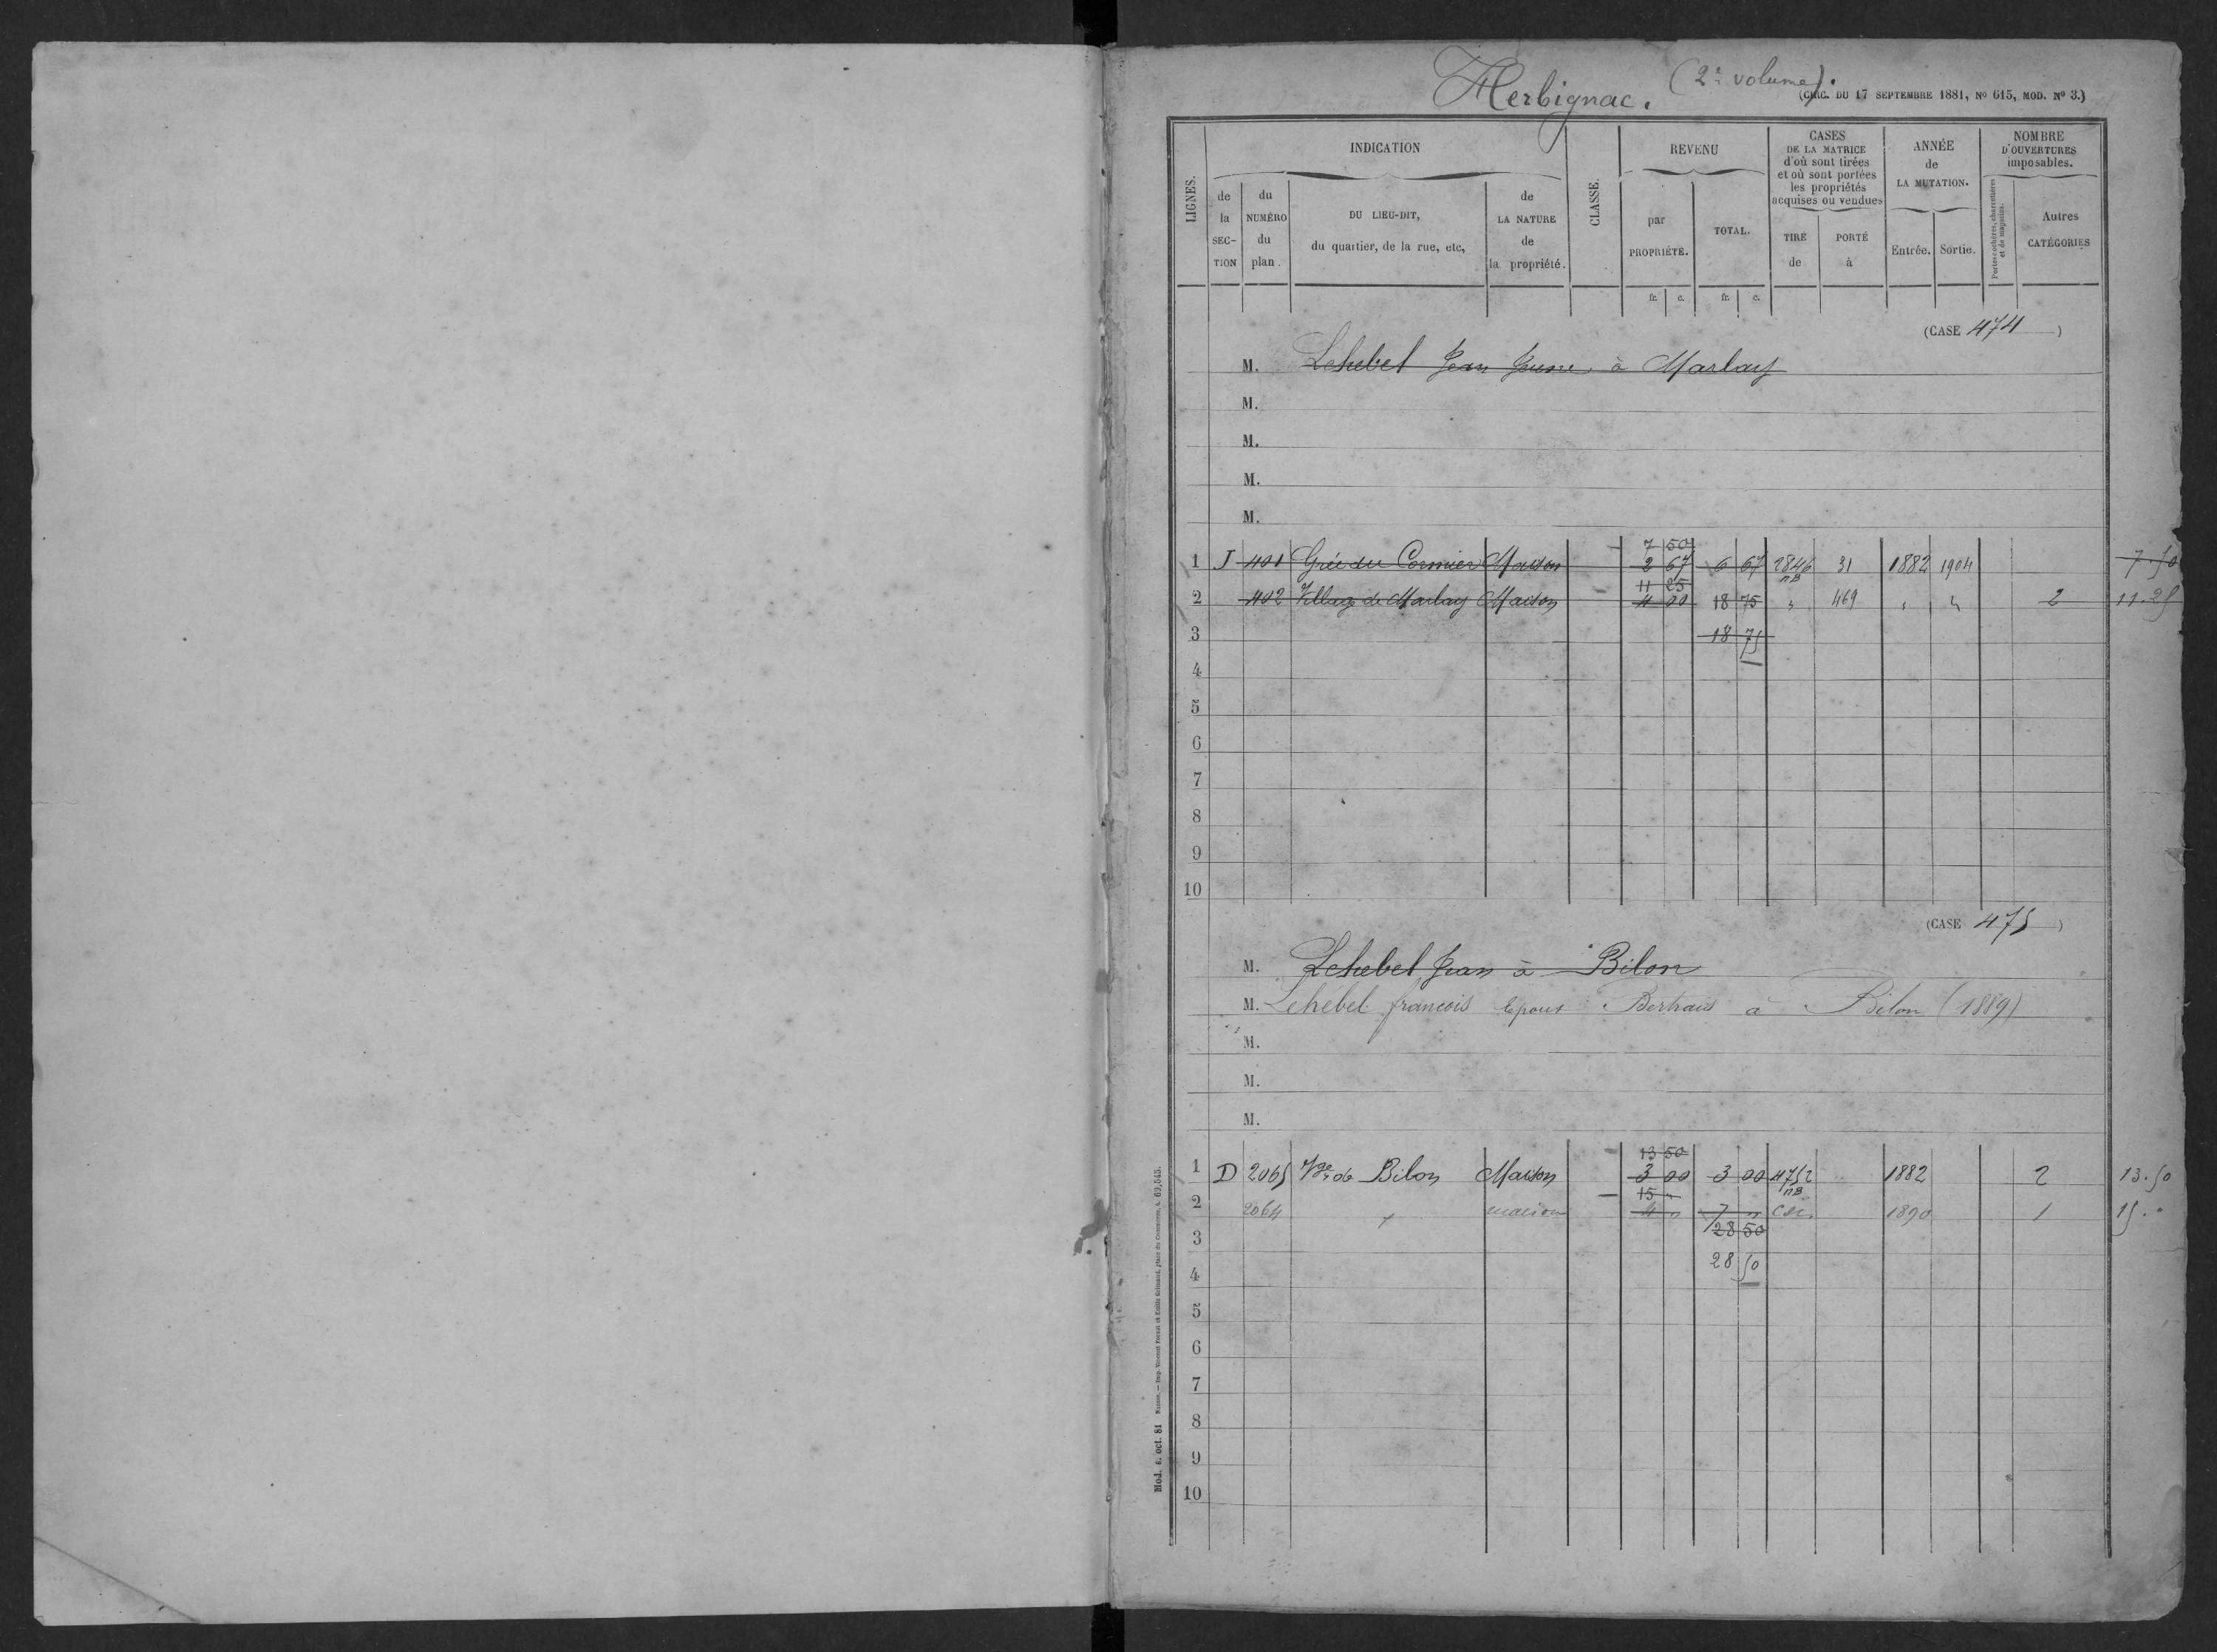 Herbignac. (2e volume).
(CIRC. DU 17 SEPTEMBRE 1881, No 615, MOD. No 3.)
LIGNES.
INDICATION
de la SECTION
du NUMÉRO du plan.
DU LIEU-DIT, du quartier, de la rue, etc,
de LA NATURE de la propriété.
CLASSE.
REVENU
par PROPRIÉTÉ.
TOTAL.
CASES DE LA MATRICE d'où sont tirées et où sont portées les propriétés acquises ou vendues
TIRÉ de
PORTÉ à
ANNÉE de LA MUTATION.
Entrée.
Sortie.
NOMBRE D'OUVERTURES imposables.
Portes cochères, charretières et de magasins.
Autres CATÉGORIES
fr. c. fr. c.
(CASE 474)
M. Lehebel Jean Jeune à Marlay
M.
M.
M.
M.
7 50
1 J 401 Grée du Cormier Maison 2 67 6 67 2846 31 1882 1904 7.50
11 25 nB
2 402 Village de Marlay Maison 4 00 18 75 " 469 " " 2 11.25
3 18 75
4
5
6
7
8
9
10
(CASE 475)
M. Lehebel Jean à Bilon
M. Lehebel francois Epoux à Bilon (1889)
M.
M.
M.
13 50
1 D 2065 Vge de Bilon Maison 3 00 3 00 4752 1882 2 13.50
15 " nB
2 2064 maison 4 " 7 " 1890 1 15.."
28 50
3
28 50
4
5
6
7
8
9
10
Mod. 6. oct. 81